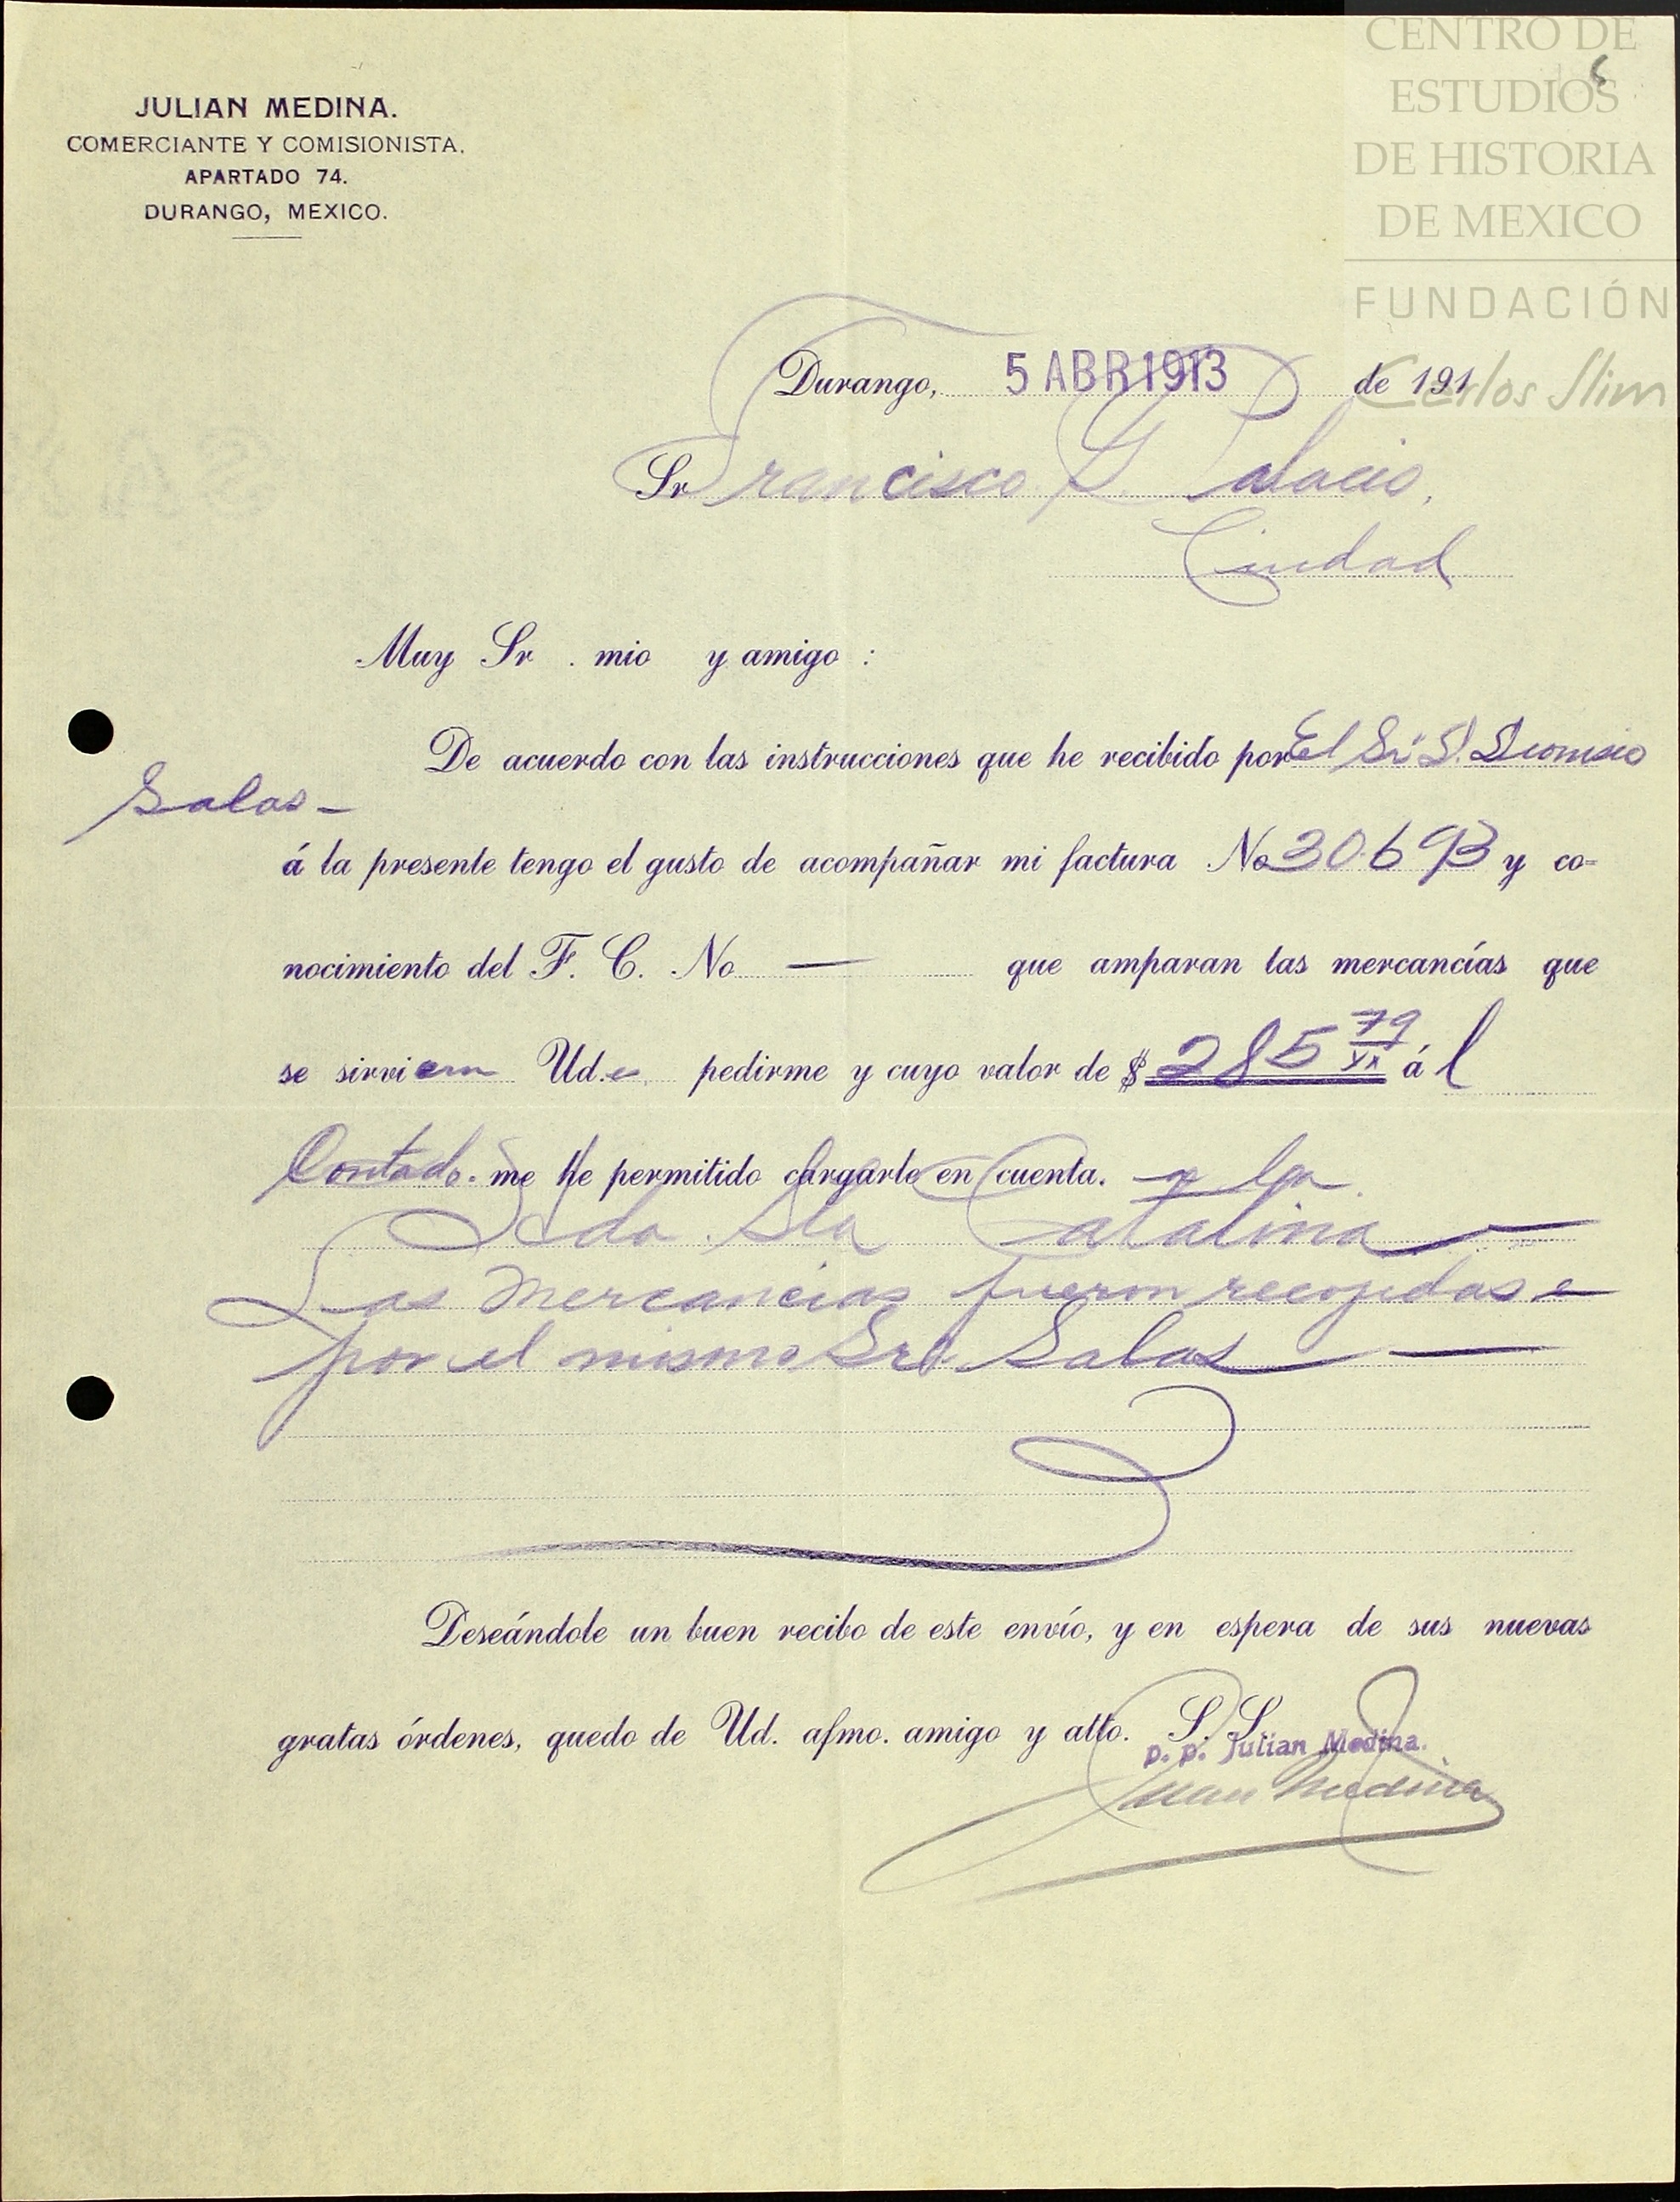 CENTRO DE
ESTUDIOS
DE HISTORIA
DE MEXICO
FUNDACIÓN
Carlos Slim
JULIAN MEDINA.
COMERCIANTE Y COMISIONISTA.
APARTADO 74.
DURANGO, MEXICO.
Durango, 5 ABR 1913 de 191
Sr Francisco G. Palacio,
Ciudad
Muy Sr . mio y amigo :
De acuerdo con las instrucciones que he recibido por El Sr. D. Dionisio
Salas —
á la presente tengo el gusto de acompañar mi factura No 30693 y co=
nocimiento del F. C. No — que amparan las mercancías que
se sirvieron Ud.s pedirme y cuyo valor de $ 285 79 á l
Contado. me he permitido cargarle en cuenta. a la
Hda. Sta Catalina —
Las Mercancias fueron recojidas
por el mismo Sr. Salas —
Deseándole un buen recibo de este envío, y en espera de sus nuevas
gratas órdenes, quedo de Ud. afmo. amigo y atto. S. S.
p. p. Julian Medina.
Juan Medina